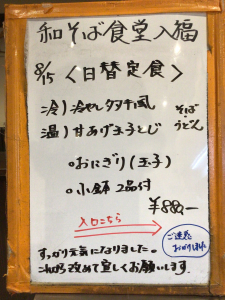 和そば食堂入福
8/15 〈日替定食〉
冷）冷やしタヌキ風
温）甘あげ玉子とじ
そば
うどん
○おにぎり（玉子）
○小鉢 2品付
¥880ー
入口こちら
ご迷惑
おかけしました
すっかり元気になりました。
これから改めて宜しくお願いします。